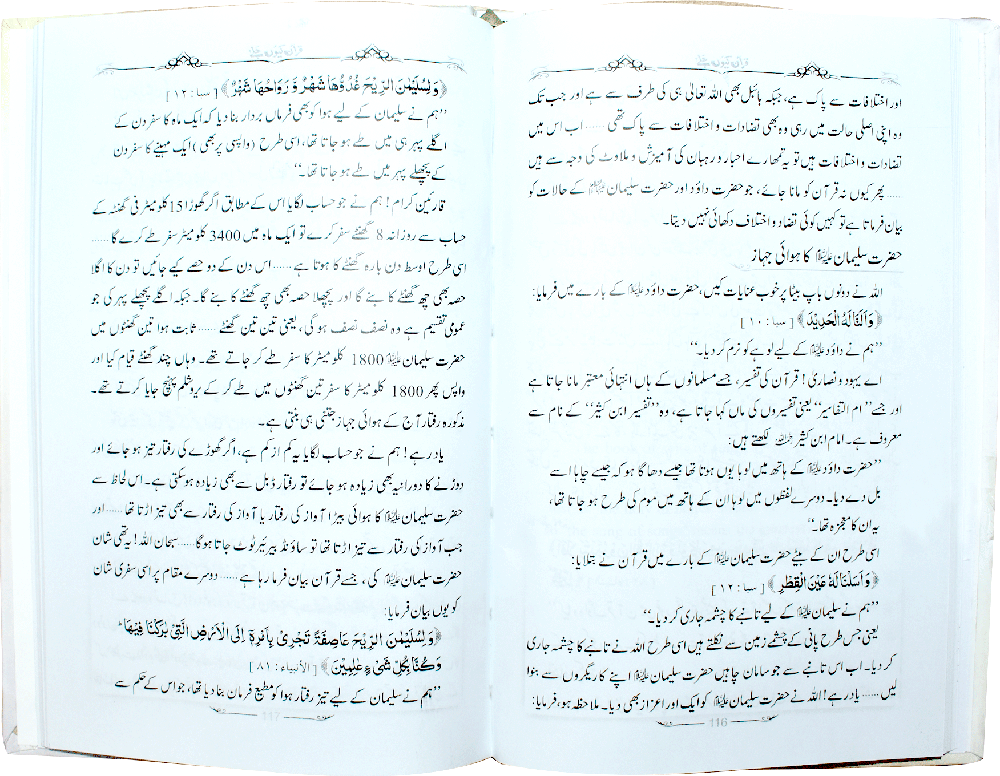 اور اختلافات سے پاک ہے، جبکہ بائبل بھی اللہ تعالیٰ ہی کی طرف سے ہے اور جب تک
وہ اپنی اصلی حالت میں رہی وہ بھی تضادات و اختلافات سے پاک تھی ...... اب اس میں
تضادات و اختلافات ہیں تو یہ تمھارے احبار و رہبان کی آمیزش و ملاوٹ کی وجہ سے ہیں
...... پھر کیوں نہ قرآن کو مانا جائے، جو حضرت داؤد اور حضرت سلیمان علیہما السلام کے حالات کو
بیان فرماتا ہے تو کہیں کوئی تضاد و اختلاف دکھائی نہیں دیتا۔
حضرت سلیمان علیہ السلام کا ہوائی جہاز
اللہ نے دونوں باپ بیٹا پر خوب عنایات کیں، حضرت داؤد علیہ السلام کے بارے میں فرمایا:
﴿وَاَلَنَّا لَهُ الْحَدِيْدَ﴾ [سبا: ۱۰]
’’ہم نے داؤد علیہ السلام کے لیے لوہے کو نرم کر دیا۔‘‘
اے یہود و نصاریٰ! قرآن کی تفسیر، جسے مسلمانوں کے ہاں انتہائی معتبر مانا جاتا ہے
اور جسے ’’ام التفاسیر‘‘ یعنی تفسیروں کی ماں کہا جاتا ہے، وہ ’’تفسیر ابن کثیر‘‘ کے نام سے
معروف ہے۔ امام ابن کثیر رحمہ اللہ لکھتے ہیں:
’’حضرت داؤد علیہ السلام کے ہاتھ میں لوہا یوں ہوتا تھا جیسے دھاگا ہو کہ جیسے چاہا اسے
بل دے دیا۔ دوسرے لفظوں میں لوہا ان کے ہاتھ میں موم کی طرح ہو جاتا تھا،
یہ ان کا معجزہ تھا۔‘‘
اسی طرح ان کے بیٹے حضرت سلیمان علیہ السلام کے بارے میں قرآن نے بتلایا:
﴿وَاَسَلْنَا لَهٗ عَيْنَ الْقِطْرِ﴾ [سبا: ۱۲]
’’ہم نے سلیمان علیہ السلام کے لیے تانبے کا چشمہ جاری کر دیا۔‘‘
یعنی جس طرح پانی کے چشمے زمین سے نکلتے ہیں اسی طرح اللہ نے تانبے کا چشمہ جاری
کر دیا۔ اب اس تانبے سے جو سامان چاہیں حضرت سلیمان علیہ السلام اپنے کاریگروں سے بنوا
لیں ...... یاد رہے! اللہ نے حضرت سلیمان علیہ السلام کو ایک اور اعزاز بھی دیا۔ ملاحظہ ہو، فرمایا:
116
﴿وَلِسُلَيْمٰنَ الرِّيْحَ غُدُوُّهَا شَهْرٌ وَّرَوَاحُهَا شَهْرٌ﴾ [سبا: ۱۲]
’’ہم نے سلیمان کے لیے ہوا کو بھی فرماں بردار بنا دیا کہ ایک ماہ کا سفر دن کے
اگلے پہر ہی میں طے ہو جاتا تھا، اسی طرح (واپسی پر بھی) ایک مہینے کا سفر دن
کے پچھلے پہر میں طے ہو جاتا تھا۔‘‘
قارئین کرام! ہم نے جو حساب لگایا اس کے مطابق اگر گھوڑا 15 کلو میٹر فی گھنٹہ کے
حساب سے روزانہ 8 گھنٹے سفر کرے تو ایک ماہ میں 3400 کلو میٹر سفر طے کرے گا ......
اسی طرح اوسط دن بارہ گھنٹے کا ہوتا ہے ...... اس دن کے دو حصے کیے جائیں تو دن کا اگلا
حصہ بھی چھ گھنٹے کا بنے گا اور پچھلا حصہ بھی چھ گھنٹے کا بنے گا۔ جبکہ اگلے پچھلے پہر کی جو
عمومی تقسیم ہے وہ نصف نصف ہو گی، یعنی تین تین گھنٹے ...... ثابت ہوا تین گھنٹوں میں
حضرت سلیمان علیہ السلام 1800 کلو میٹر کا سفر طے کر جاتے تھے۔ وہاں چند گھنٹے قیام کیا اور
واپس پھر 1800 کلو میٹر کا سفر تین گھنٹوں میں طے کر کے یروشلم پہنچ جایا کرتے تھے۔
مذکورہ رفتار آج کے ہوائی جہاز جتنی ہی بنتی ہے۔
یاد رہے! ہم نے جو حساب لگایا یہ کم از کم ہے، اگر گھوڑے کی رفتار تیز ہو جائے اور
دوڑنے کا دورانیہ بھی زیادہ ہو جائے تو رفتار ڈبل سے بھی زیادہ ہو سکتی ہے۔ اس لحاظ سے
حضرت سلیمان علیہ السلام کا ہوائی بیڑا آواز کی رفتار یا آواز کی رفتار سے بھی تیز اڑتا تھا ...... اور
جب آواز کی رفتار سے تیز اڑتا تھا تو ساؤنڈ بیرئیر ٹوٹ جاتا ہو گا ...... سبحان اللہ! یہ تھی شان
حضرت سلیمان علیہ السلام کی، جسے قرآن بیان فرما رہا ہے ...... دوسرے مقام پر اسی سفری شان
کو یوں بیان فرمایا:
﴿وَلِسُلَيْمٰنَ الرِّيْحَ عَاصِفَةً تَجْرِيْ بِاَمْرِهٖۤ اِلَى الْاَرْضِ الَّتِيْ بٰرَكْنَا فِيْهَا
وَكُنَّا بِكُلِّ شَيْءٍ عٰلِمِيْنَ﴾ [الأنبياء: ۸۱]
’’ہم نے سلیمان کے لیے تیز رفتار ہوا کو مطیع فرمان بنا دیا تھا، جو اس کے حکم سے
117